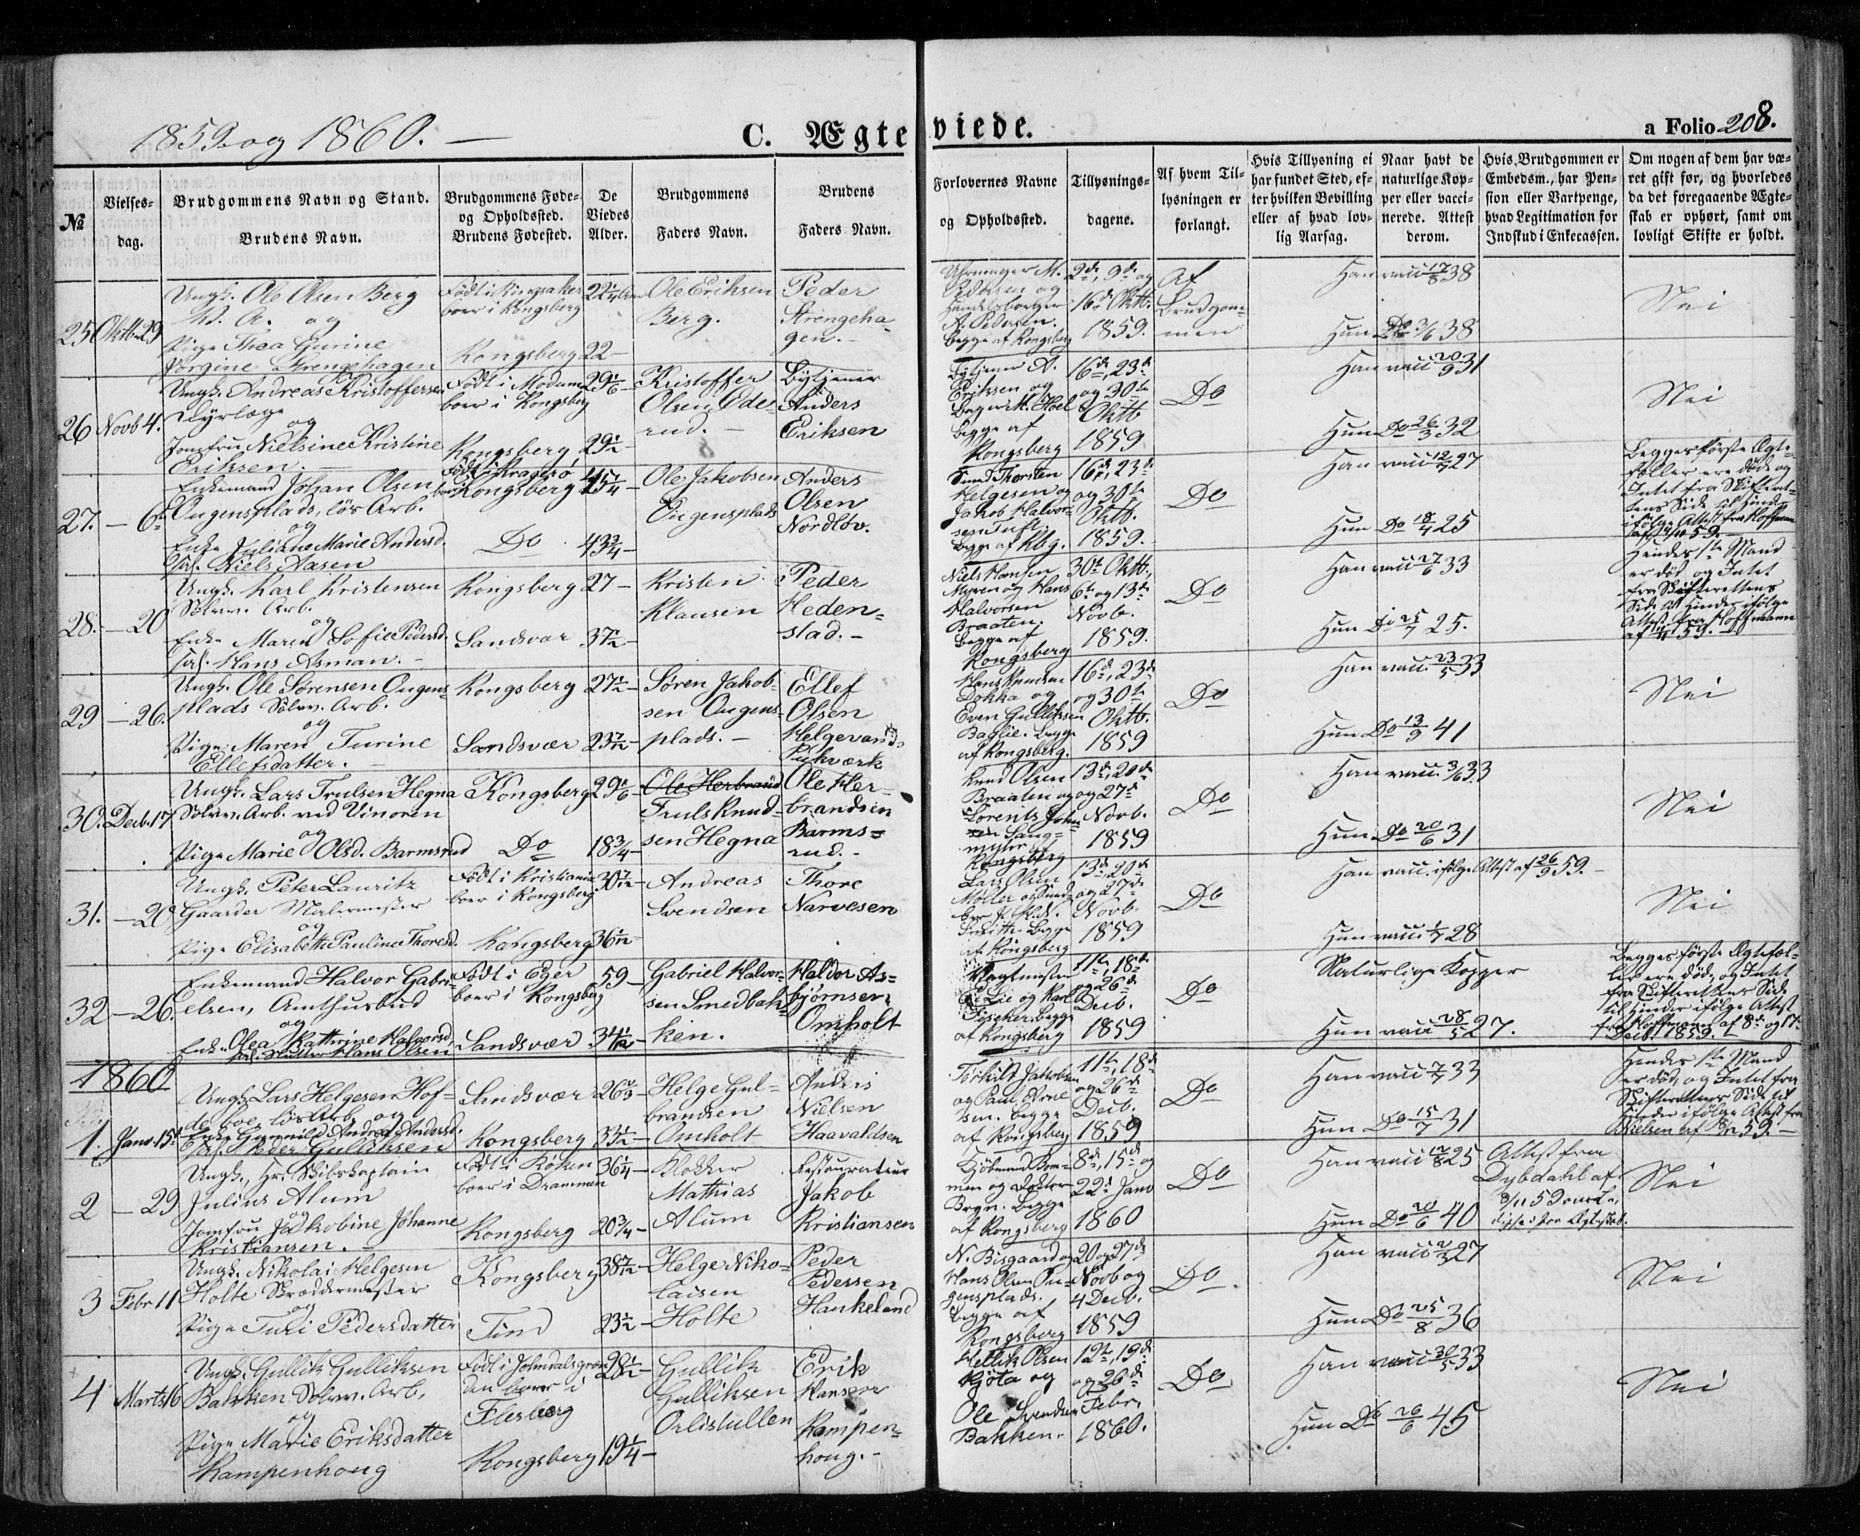 1859 og 1860. —
C. Ægteviede.
a Folio 208.
№
Vielses-
dag.
Brudgommens Navn og Stand.
Brudens Navn.
Brudgommens Føde-
og Opholdssted.
Brudens Fødested.
De
Viedes
Alder.
Brudgommens
Faders Navn.
Brudens
Faders Navn.
Forlovernes Navne
og Opholdssted.
Tillysnings-
dagene.
Af hvem Til-
lysningen er
forlangt.
Hvis Tillysning ei
har fundet Sted, ef-
ter hvilken Bevilling
eller af hvad lov-
lig Aarsag.
Naar havt de
naturlige Kop-
per eller vacci-
nerede. Attest
derom.
Hvis Brudgommen er
Embedsm., har Pen-
sion eller Vartpenge,
hvad Legitimation for
Indskud i Enkecassen.
Om nogen af dem har væ-
ret gift før, og hvorledes
da det foregaaende Ægte-
skab er ophørt, samt om
lovligt Skifte er holdt.
25 Oktb. 29
Ungk. Ole Olsen Berg
og
Pige Thea Gurine
Jørgine Strengehagen
Født i Ringsaker
boer i Kongsberg
Kongsberg 22 —
Ole Eriksen
Berg.
Peder
Strengeha-
gen. —
Uhrmager M.
Pedersen og
Handelsborger
A. Pedersen
begge af Kongsberg
2den, 9de og
16de Oktb.
1859.
Af
Brudgom-
men
Han vacc 17/8 38
Hun Do 3/6 38
Nei
26 Novb 4.
Ungk. Andreas Kristoffersen
Dyrlæge
og
Jomfru Nielsine Kristine
Eriksen. —
Født i Modum
boer i Kongsberg
29 1/6 —
Kongsberg
Kristoffer
Olsen Øde-
rud. —
Bytjener
Anders
Eriksen
Bytjener A.
Eriksen og
M. Hoel
begge af
Kongsberg
16de, 23de
og 30te
Oktb
1859
Do
Han vacc 20/9 31
Hun Do 26/3 32
Nei
27. — 6te
Enkemand Johan Olsen
Ougensplads, løs Arb.
og
Enke Juliane Marie Andersd.
Niels Aasen
Født i Kragerø
Kongsberg 45 1/4 —
Do 43 3/4 —
Ole Jakobsen
Ougensplads
Anders
Olsen
Nordløv.
Thorsten
Helgesen og
Jakob Halvor-
sen Tuft.
begge af Kbg.
16de, 23de
og 30te
Oktb.
1859.
Do
Han vacc 12/7 27
Hun Do 18/4 25
Begges første Ægte-
fæller ere døde og
Intet fra Skifteret-
tens Side til Hinder
ifølge Attest fra Hoffmann
28. — 20
Ungk. Karl Kristensen
Sølvv. Arb.
og
Enke Maren Sofie Pedersd.
Hans Asman. —
Kongsberg 27 —
Sandsvær
Kristen
Klausen
Peder
Heden-
stad. —
Niels Hansen
Myren og Hans
Halvorsen
Braaten.
begge af
Kongsberg
30te Oktb.,
6te og 13de
Novb.
1859.
Do
Han vacc 27/6 33
Hun Do 25/7 25.
Hendes 1ste Mand
er død og Intet
fra Skifterettens
Side til Hinder ifølge
Attest fra Hoffmann
29 — 26.
Ungk. Ole Sørensen Ougens-
plads Sølvv. Arb.
og
Pige Maren Turine
Ellefsdatter. —
Kongsberg
Sandsvær
Søren Jakob-
sen Ougens-
plads. —
Ellef
Olsen
Helgevands
Pukværk
Hans Knudsen
Dokka og
Even Gulliksen
Baglie. begge
af Kongsberg.
16de, 23de
og 30te
Oktb.
1859
Do
Han vacc 23/5 33
Hun Do 13/9 41
Nei
30. Decb. 17
Ungk. Lars Trulsen Hegna
Sølvv. Arb. ved Vinoren
og
Pige Marie Olsd. Barmsrud
Kongsberg 29 1/6 —
Do 18 3/4 —
Ole Herbrand
Truls Knud-
sen Hegna
Ole Her-
brandsen
Barms-
rud. —
Knud Olsen
Braaten og
Lorents John-
Kongsberg
13de, 20de
og 27de
Novb.
1859
Do
Han vacc 3/6 33
Hun Do 20/6 31
Nei
31. — 20
Ungk. Peter Lauritz
Gaarder Malermester
og
Pige Elisabeth Pauline Thoresd.
Født i Kristiania
boer i Kongsberg
Kongsberg
Andreas
Svendsen
Thore
Narvesen
Lars Olsen
Møller og
begge
af Kongsberg
13de, 20de
og 27de
Novb.
1859
Do
Han vacc. ifølge Attest af 26/9 59. —
Nei
32 — 26.
Enkemand Halvor Gabri-
elsen, Amthusbud
og
Enke Olea Kathrine Halvorsd,
Hans Olsen
Født i Eger
boer i Kongsberg
59 —
Sandsvær
Gabriel Halvor-
sen Smedbak-
ken.
Halvor As-
bjørnsen
Omholt
Vagtmester
og Karl
Fischer begge
af Kongsberg
11te, 18de
og 26de
Decb.
1859
Do
Naturlige Kopper
Hun vacc 28/5 27.
Begges første Ægtefæl-
ler ere døde, og Intet
fra Skifterettens Side
til Hinder ifølge Attest
fra Hoffmann af 8de og 17de
Decb. 1859.
1860
1. Janr. 15de
Ungk. Lars Helgesen Hof-
løs Arb. og
Enke Gunnild Andrea Andersd.
Peder Gulliksen
Sandsvær
Kongsberg
Helge Gul-
brandsen
Omholt
Anders
Nielsen
Haavaldsen
Torkild Jakobsen
og Paul Arne
sen. begge
af Kongsberg
11te, 18de
og 26de
Decb.
1859
Do
Hun Do 15/7 31
Hendes 1ste Mand
er død, og Intet fra
Skifterettens Side til
Hinder ifølge Attest fra
Nielsen
2 — 29
Ungk., Hr. Skibskaptain
Julius Alum
og
Jomfru Jakobine Johanne
Kristiansen.
Født i Røken
boer i Drammen
36 1/4 —
Kongsberg 20 3/4 —
Klokker
Mathias
Alum
Restaurateur
Jakob
Kristiansen
og Doktor
begge
af Kongsberg
8de, 15de og
22de Janr
1860
Do
Han vacc 12/8 25
Hun Do 20/6 40
Attest fra
Dybdahl af
Nei
3 Febr 11
Ungk. Nikolai Helgesen
Holte Skræddermester
og
Pige Turi Pedersdatter
Kongsberg
Tind
Helge Niko-
laisen
Holte
Peder
Pedersen
Haukeland
N. Bisgaard og
Hans Olsen Ou-
gensplads.
begge af
Kongsberg
20 og 27de
Novb og
4 Decb.
1859
Do
Hun Do 25/8 36
Nei
4 Marts 16
Ungk. Gullik Gulliksen
Bakken Sølvv. Arb.
og
Pige Marie Eriksdatter
Kampenhoug
Født i
boer i
Flesberg
Kongsberg 19 1/4 —
Gullik
Gulliksen
Erik
Hansen
Kampen-
houg. —
Hellik Olsen
og
Ole Svendsen
Bakken.
12te, 19de
og 26de
Febr.
1860.
Do
Hun Do 26/6 45
Nei